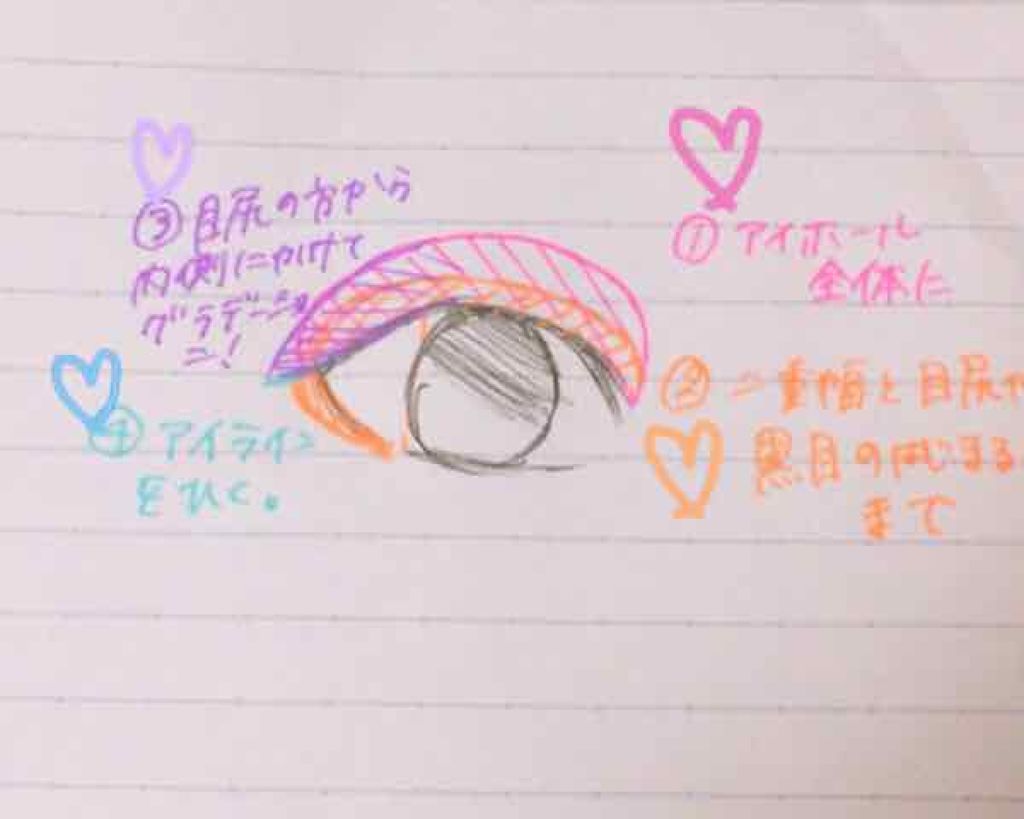 ① アイホール
全体に
② 二重幅と目尻か
黒目のはじまる
まで
③ 目尻の方から
内側にかけて
グラデーショ
ン!
④ アイライン
をひく。